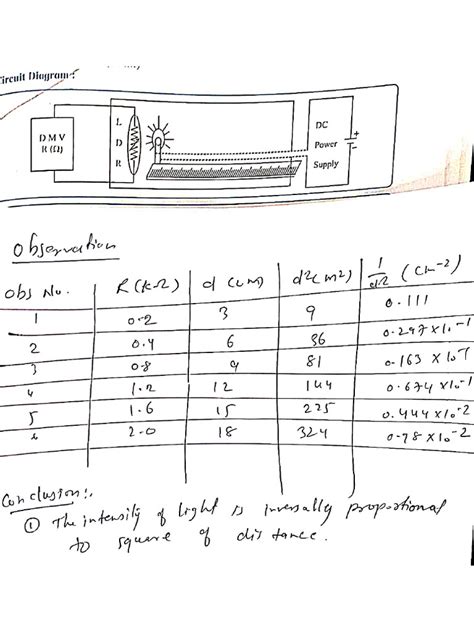 Circuit Diagram :
DMV
R (Ω)
L
D
R
DC
Power
Supply
+
-
Observation
Obs No. R (KΩ) d (cm) d2 (m2) 1/d2 (cm-2)
1 0.2 3 9 0.111
2 0.4 6 36 0.297 x 10-1
3 0.8 9 81 0.163 x 10-1
4 1.2 12 144 0.674 x 10-1
5 1.6 15 225 0.444 x 10-2
2.0 18 324 0.78 x 10-2
Conclusion:
① The intensity of light is inversally proportional
to square of distance.